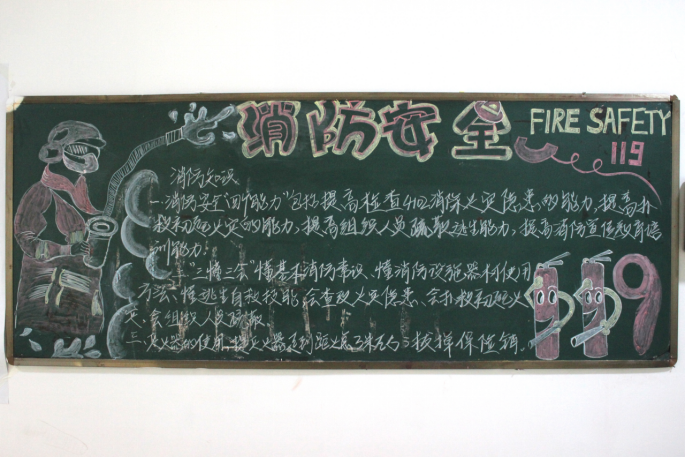 消防安全
FIRE SAFETY
119
消防知识
一.消防安全“四个能力”包括提高检查和消除火灾隐患的能力,提高扑
救初起火灾的能力,提高组织人员疏散逃生能力,提高消防宣传教育培
训能力.
二."三懂三会"懂基本消防常识、懂消防设施器材使用
方法、懂逃生自救技能,会查改火灾隐患、会扑救初起火
灾、会组织人员疏散
三.灭火器的使用.提灭火器到距火点3米左右 拔掉保险销.
119